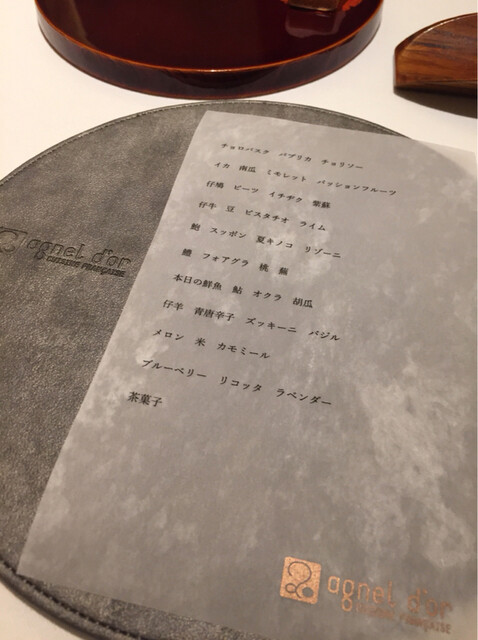 チョロバスク パプリカ チョリソー
イカ 南瓜 ミモレット パッションフルーツ
仔鳩 ビーツ イチヂク 紫蘇
仔牛 豆 ピスタチオ ライム
鮑 スッポン 夏キノコ リゾーニ
鱧 フォアグラ 桃 蕪
本日の鮮魚 鮎 オクラ 胡瓜
仔羊 青唐辛子 ズッキーニ バジル
メロン 米 カモミール
ブルーベリー リコッタ ラベンダー
茶菓子
agnel d'or
CUISINE FRANÇAISE
agnel d'or
CUISINE FRANÇAISE